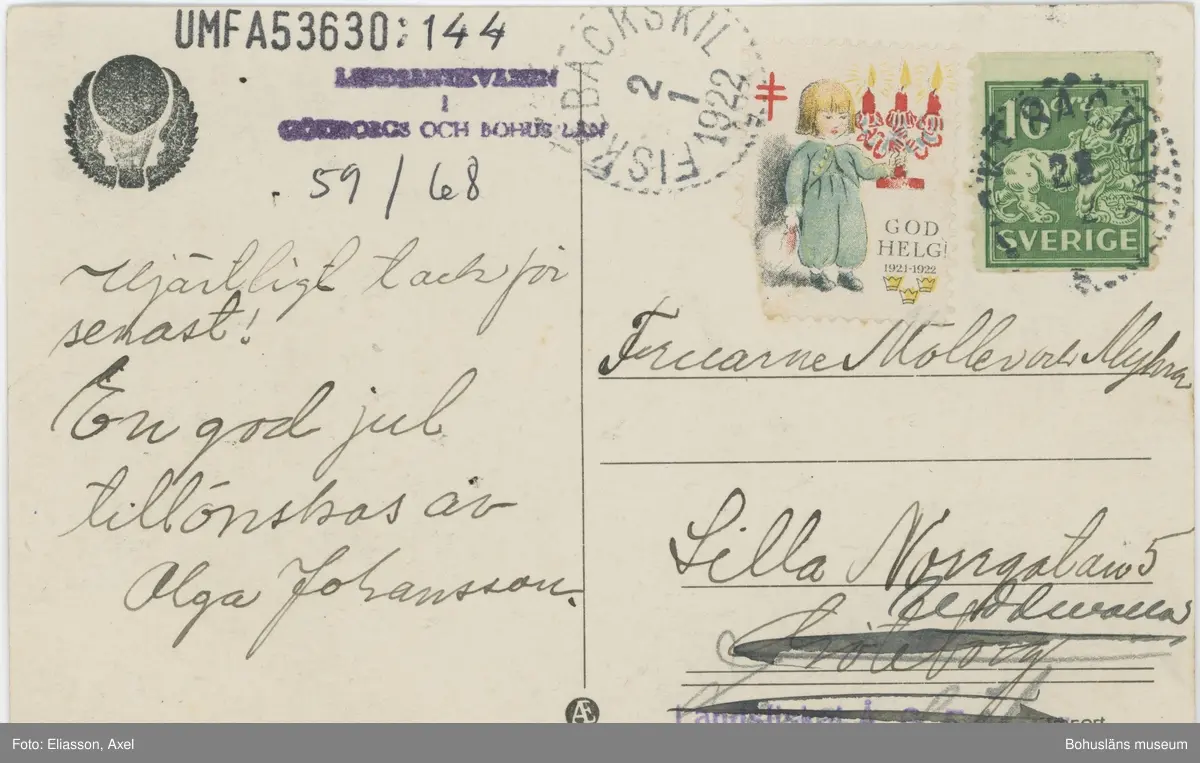 UMFA53630:144
LANDSANTIKVARIEN
I
GÖTEBORGS OCH BOHUS LÄN
59/68
FISKEBÄCKSKIL
2
1
1922
GOD
HELG
1921-1922
10
SVERIGE
28
Hjärtligt tack för
senast!
En god jul
tillönskas av
Olga Johansson.
Fruarne Möller och Myhra
Lilla Norrgatan 5
Uddevalla
Göteborg
Æ
Foto: Eliasson, Axel
Bohusläns museum